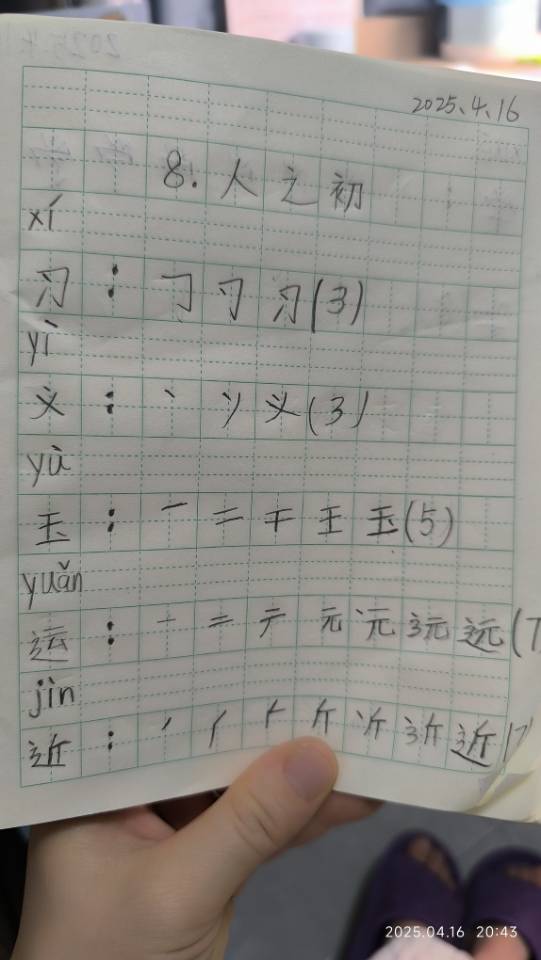 2025.4.16
8.人之初
xí
习：㇆ 习 习(3)
yì
义：丶 㐅 义(3)
yù
玉：一 二 干 王 玉(5)
yuǎn
运：一 二 テ 元 远 远 远(7
jìn
近：㇒ 厂 斤 斤 近 近 近(7
2025.04.16 20:43